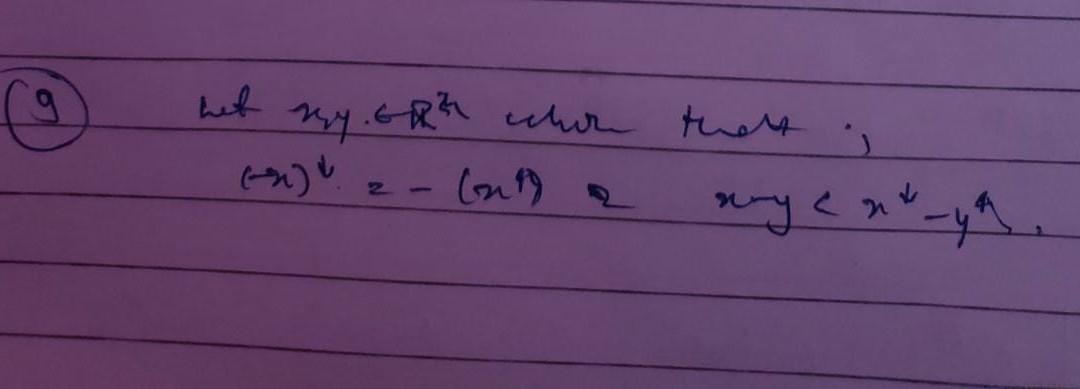 9 Let x,y ∈ ℝⁿ show that ;
(-x)↓ = - (x↑) & x-y < x↓ - y↑.